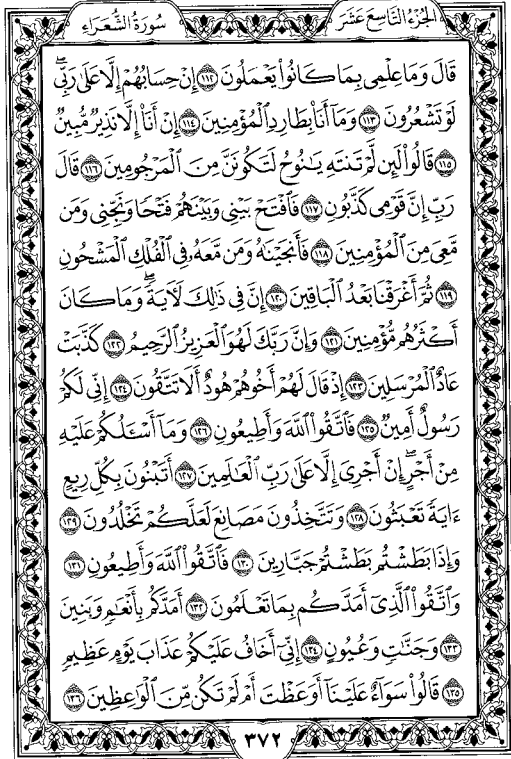 الجزء التاسع عشر
سورة الشعراء
قَالَ وَمَا عِلْمِي بِمَا كَانُواْ يَعْمَلُونَ ١١٢ إِنْ حِسَابُهُمْ إِلَّا عَلَىٰ رَبِّي
لَوْ تَشْعُرُونَ ١١٣ وَمَا أَنَا۠ بِطَارِدِ ٱلْمُؤْمِنِينَ ١١٤ إِنْ أَنَا۠ إِلَّا نَذِيرٌ مُّبِينٌ
١١٥ قَالُواْ لَئِن لَّمْ تَنتَهِ يَٰنُوحُ لَتَكُونَنَّ مِنَ ٱلْمَرْجُومِينَ ١١٦ قَالَ
رَبِّ إِنَّ قَوْمِي كَذَّبُونِ ١١٧ فَٱفْتَحْ بَيْنِي وَبَيْنَهُمْ فَتْحًا وَنَجِّنِي وَمَن
مَّعِيَ مِنَ ٱلْمُؤْمِنِينَ ١١٨ فَأَنجَيْنَٰهُ وَمَن مَّعَهُۥ فِي ٱلْفُلْكِ ٱلْمَشْحُونِ
١١٩ ثُمَّ أَغْرَقْنَا بَعْدُ ٱلْبَاقِينَ ١٢٠ إِنَّ فِي ذَٰلِكَ لَأٓيَةً ۖ وَمَا كَانَ
أَكْثَرُهُم مُّؤْمِنِينَ ١٢١ وَإِنَّ رَبَّكَ لَهُوَ ٱلْعَزِيزُ ٱلرَّحِيمُ ١٢٢ كَذَّبَتْ
عَادٌ ٱلْمُرْسَلِينَ ١٢٣ إِذْ قَالَ لَهُمْ أَخُوهُمْ هُودٌ أَلَا تَتَّقُونَ ١٢٤ إِنِّي لَكُمْ
رَسُولٌ أَمِينٌ ١٢٥ فَٱتَّقُواْ ٱللَّهَ وَأَطِيعُونِ ١٢٦ وَمَآ أَسْـَٔلُكُمْ عَلَيْهِ
مِنْ أَجْرٍ ۖ إِنْ أَجْرِيَ إِلَّا عَلَىٰ رَبِّ ٱلْعَٰلَمِينَ ١٢٧ أَتَبْنُونَ بِكُلِّ رِيعٍ
ءَايَةً تَعْبَثُونَ ١٢٨ وَتَتَّخِذُونَ مَصَانِعَ لَعَلَّكُمْ تَخْلُدُونَ ١٢٩
وَإِذَا بَطَشْتُم بَطَشْتُمْ جَبَّارِينَ ١٣٠ فَٱتَّقُواْ ٱللَّهَ وَأَطِيعُونِ ١٣١
وَٱتَّقُواْ ٱلَّذِيٓ أَمَدَّكُم بِمَا تَعْلَمُونَ ١٣٢ أَمَدَّكُم بِأَنْعَٰمٍ وَبَنِينَ
١٣٣ وَجَنَّٰتٍ وَعُيُونٍ ١٣٤ إِنِّيٓ أَخَافُ عَلَيْكُمْ عَذَابَ يَوْمٍ عَظِيمٍ
١٣٥ قَالُواْ سَوَآءٌ عَلَيْنَآ أَوَعَظْتَ أَمْ لَمْ تَكُن مِّنَ ٱلْوَٰعِظِينَ ١٣٦
٣٧٢